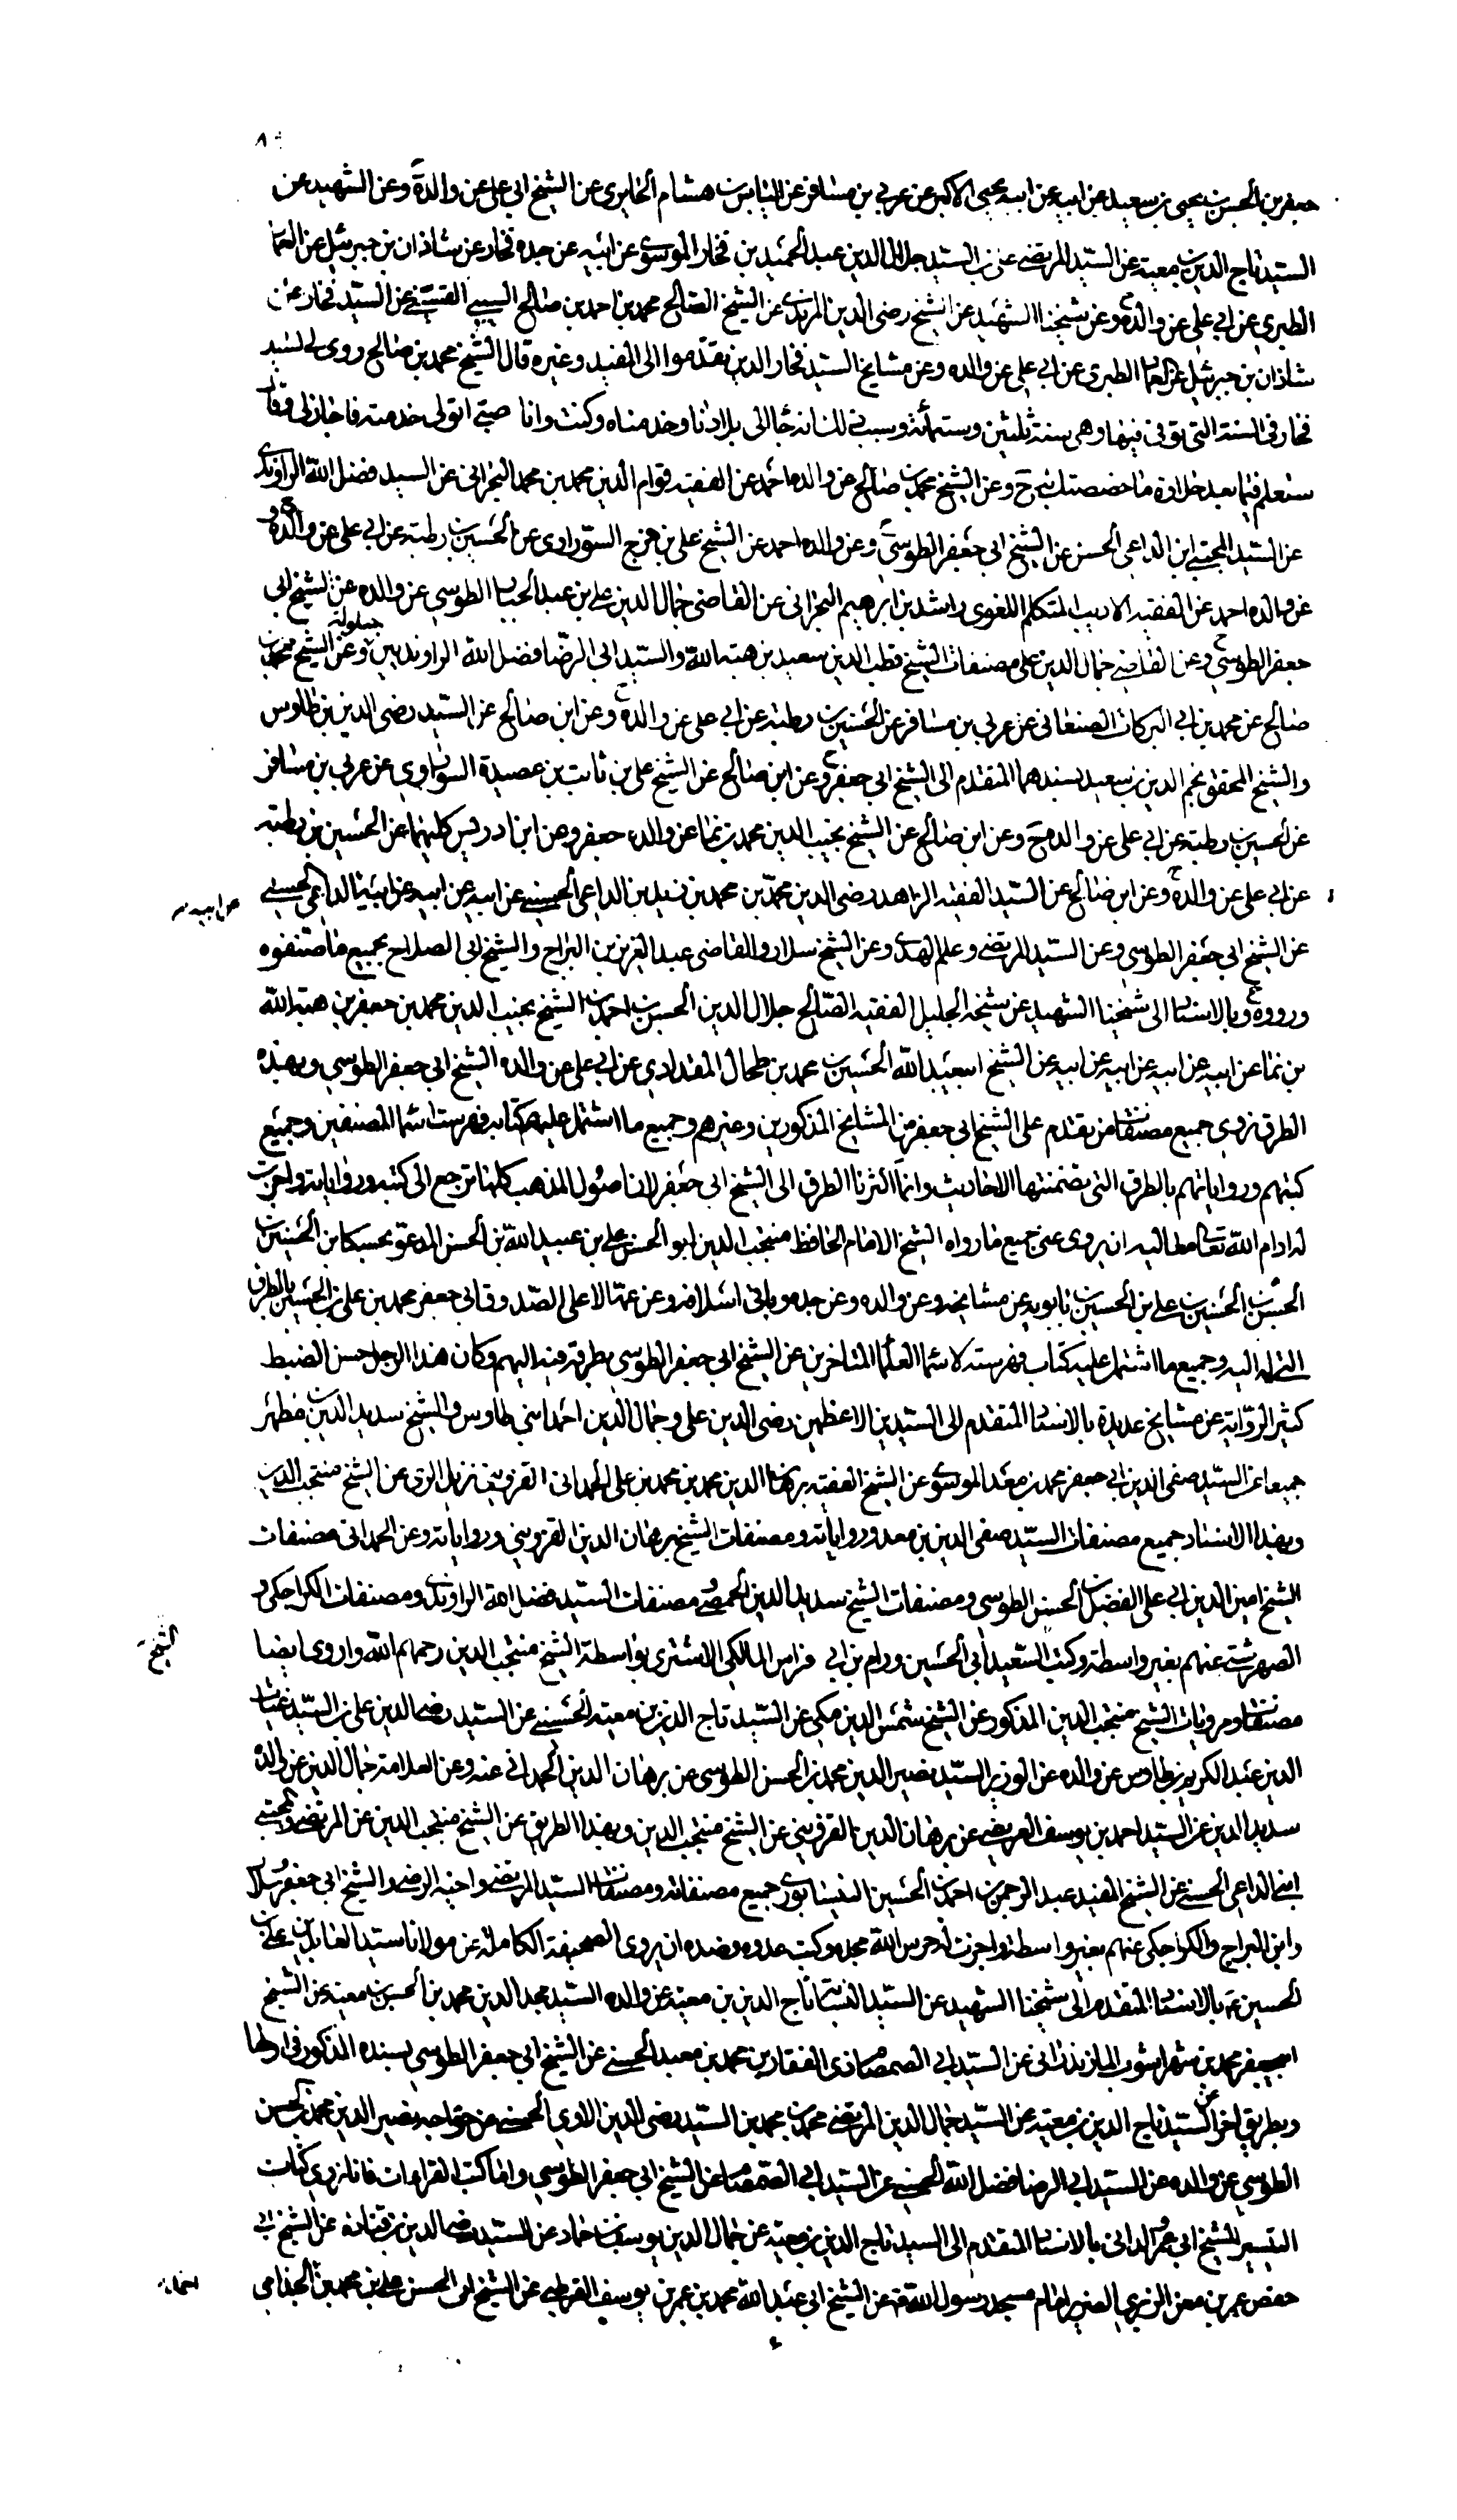 جعفر بن الحسن بن يحيى بن سعيد عن ابيه عن ابيه يحيى الاكبر عن عربي بن مسافر عن الياس بن هشام الحايرى عن الشيخ ابي علي عن والده وعن الشهيد عن
السيد تاج الدين بن معية عن السيد المرتضى علي بن السيد جلال الدين عبد الحميد بن فخار الموسوى عن ابيه عن جده فخار عن شاذان بن جبرئيل عن العماد
الطبرى عن ابي علي عن والده وعن شيخنا الشهيد عن الشيخ رضى الدين المزيدى عن الشيخ الصالح محمد بن احمد بن صالح السيبي القسيني عن السيد فخار عن
شاذان بن جبرئيل عن العماد الطبرى عن ابي علي عن والده وعن مشايخ السيد فخار الدين تقدموا الى المفيد وغيره قال الشيخ محمد بن صالح روى لي السيد
فخار فى السنة التى توفى فيها وهى سنة ثلثين وستمائة وسبب ذلك انه جا الى بلادنا وخدمناه وكنت وانا صبى اتولى خدمته فاجازنى وقال
ستعلم فيما بعد حلاوة ما خصصتك به ح وعن الشيخ محمد بن صالح عن والده احمد عن الفقيه قوام الدين محمد بن محمد البحرانى عن السيد فضل الله الراوندى
عن السيد المجتبى ابن الداعى الحسنى عن الشيخ ابي جعفر الطوسى وعن والده احمد عن الشيخ على بن فرج السوراوى عن الحسين بن رطبة عن ابي على عن والده ح و
عن والده احمد عن الفقيه الاديب المتكلم اللغوى راشد بن ابرهيم البحرانى عن القاضى جمال الدين علي بن عبد الجبار الطوسى عن والده عن الشيخ ابي
جعفر الطوسى وعن القاضى جمال الدين على مصنفات الشيخ قطب الدين سعيد بن هبة الله والسيد ابى الرضا فضل الله الراونديين وعن الشيخ محمد بن
صالح عن محمد بن ابي البركات الصنعانى عن عربي بن مسافر عن الحسين بن رطبة عن ابي على عن والده ح وعن ابن صالح عن السيد رضى الدين بن طاوس
والشيخ المحقق نجم الدين بن سعيد بسندهما المتقدم الى الشيخ ابي جعفر ح وعن ابن صالح عن الشيخ على بن ثابت بن عصيدة السوراوى عن عربي بن مسافر
عن الحسين بن رطبة عن ابي على عن والده ح وعن ابن صالح عن الشيخ نجيب الدين محمد بن نما عن والده جعفر وعن ابن ادريس كليهما عن الحسين بن رطبة
عن ابي على عن والده ح وعن ابن صالح عن السيد الفقيه الزاهد رضى الدين محمد بن محمد بن محمد بن زيد بن الداعى الحسيني عن ابيه عن ابيه عن ابيه الداعى الحسيني
عن ابيه
عن الشيخ ابي جعفر الطوسى وعن السيد المرتضى وعلم الهدى وعن الشيخ سلار والقاضى عبد العزيز بن البراج والشيخ ابى الصلاح بجميع ما صنفوه
ورووه ح وبالاسناد الى شيخنا الشهيد عن شيخه الجليل الفقيه الصالح جلال الدين الحسن بن احمد بن الشيخ نجيب الدين محمد بن جعفر بن هبة الله
بن نما عن ابيه عن ابيه عن ابيه عن ابيه عن الشيخ ابي عبد الله الحسين بن محمد بن طحال المقدادى عن ابي على عن والده الشيخ ابي جعفر الطوسى وبهذه
الطرق نروى جميع مصنفات من تقدم على الشيخ ابي جعفر من المشايخ المذكورين وغيرهم وجميع ما اشتمل عليه كتابه فهرست اسما المصنفين وجميع
كتبهم ورواياتهم بالطرق التى تضمنتها الاحاديث وانما اكثرنا الطرق الى الشيخ ابى جعفر لان اصول المذهب كلها ترجع الى كتبه ورواياته واجزت
له ادام الله تعالى معاليه ان يروى عنى جميع ما رواه الشيخ الامام الحافظ منتجب الدين ابو الحسن على بن عبيد الله بن الحسن المدعو بحسكا بن الحسين بن
الحسن بن الحسين بن علي بن الحسين بن بابويه عن مشايخه وعن والده وعن جده وباقى اسلافه وعن عمه الاعلى الصدوق ابي جعفر محمد بن على بن الحسين بالطرق
التى له اليه وجميع ما اشتمل عليه كتاب فهرسته لاسما العلما المتاخرين عن الشيخ ابي جعفر الطوسى بطرقه فيه اليهم وكان هذا الرجل حسن الضبط
كثير الرواية عن مشايخ عديدة بالاسناد المتقدم الى السيدين الاعظمين رضى الدين على وجمال الدين احمد ابني طاوس والشيخ سديد الدين بن مطهر
جميعا عن السيد صفى الدين ابي جعفر محمد بن معد الموسوى عن الشيخ الفقيه برهان الدين محمد بن محمد بن على الحمدانى القزوينى نزيل الرى عن الشيخ منتجب الدين
وبهذا الاسناد جميع مصنفات السيد صفى الدين بن معد ورواياته ومصنفات الشيخ برهان الدين القزوينى ورواياته وعن الحمدانى مصنفات
الشيخ امين الدين ابي على الفضل بن الحسن الطوسى ومصنفات الشيخ سديد الدين الحمصى ومصنفات السيد فضل الله الراوندى ومصنفات الكراجكى و
الصهرشتى عنهم بغير واسطة وكتب السعيد ابي الحسين ورام بن ابي فراس المالكى الاشترى بواسطة الشيخ منتجب الدين رحمهم الله واروى ايضا
الشيخ
مصنفات ومرويات الشيخ منتجب الدين المذكور عن الشيخ شمس الدين مكى عن السيد تاج الدين بن معية الحسنى عن السيد رضى الدين على بن السيد غياث
الدين عبد الكريم بن طاوس عن والده عن الوزير السيد نصير الدين محمد بن الحسن الطوسى عن برهان الدين الحمدانى عنه وعن العلامة جمال الدين عن والده
سديد الدين عن السيد احمد بن يوسف العريضى عن برهان الدين القزوينى عن الشيخ منتجب الدين وبهذا الطريق عن الشيخ منتجب الدين عن المرتضى والمجتبى
ابنى الداعى الحسنى عن الشيخ المفيد عبد الرحمن بن احمد بن الحسين النيسابورى جميع مصنفاته ومصنفات السيد المرتضى واخيه الرضى والشيخ ابى جعفر وسلار
وابن البراج والكراجكى عنهم بغير واسطة واجزت له حرس الله مجده وكبت عدوه وضده ان يروى الصحيفة الكاملة عن مولانا سيد العابدين على بن
الحسين ع بالاسناد المتقدم الى شيخنا الشهيد عن السيد النسابة تاج الدين بن معية عن والده السيد مجد الدين محمد بن الحسن بن معية عن الشيخ
ابى جعفر محمد بن شهراشوب المازندرانى عن السيد ابى الصمصام ذى الفقار بن محمد بن معبد الحسنى عن الشيخ ابى جعفر الطوسى بسنده المذكور فى اولها
وبطريق اخر عن السيد تاج الدين بن معية عن السيد كمال الدين المرتضى محمد بن محمد بن السيد رضى الدين الاوى الحسنى عن خواجه نصير الدين محمد بن الحسن
الطوسى عن والده عن السيد ابى الرضا فضل الله الحسنى عن السيد ابى الصمصام عن الشيخ ابى جعفر الطوسى واما كتب القراءات فانا نروى كتاب
التيسير للشيخ ابى عمرو الدانى بالاسناد المتقدم الى السيد تاج الدين بن معية عن جمال الدين يوسف بن حماد عن السيد رضى الدين بن قتادة عن الشيخ ابى
حفص عمر بن معن الزبرى الضرير امام مسجد رسول الله ص عن الشيخ ابى عبد الله محمد بن عمر بن يوسف القرطبى عن الشيخ ابى الحسن على بن محمد بن الجذامى